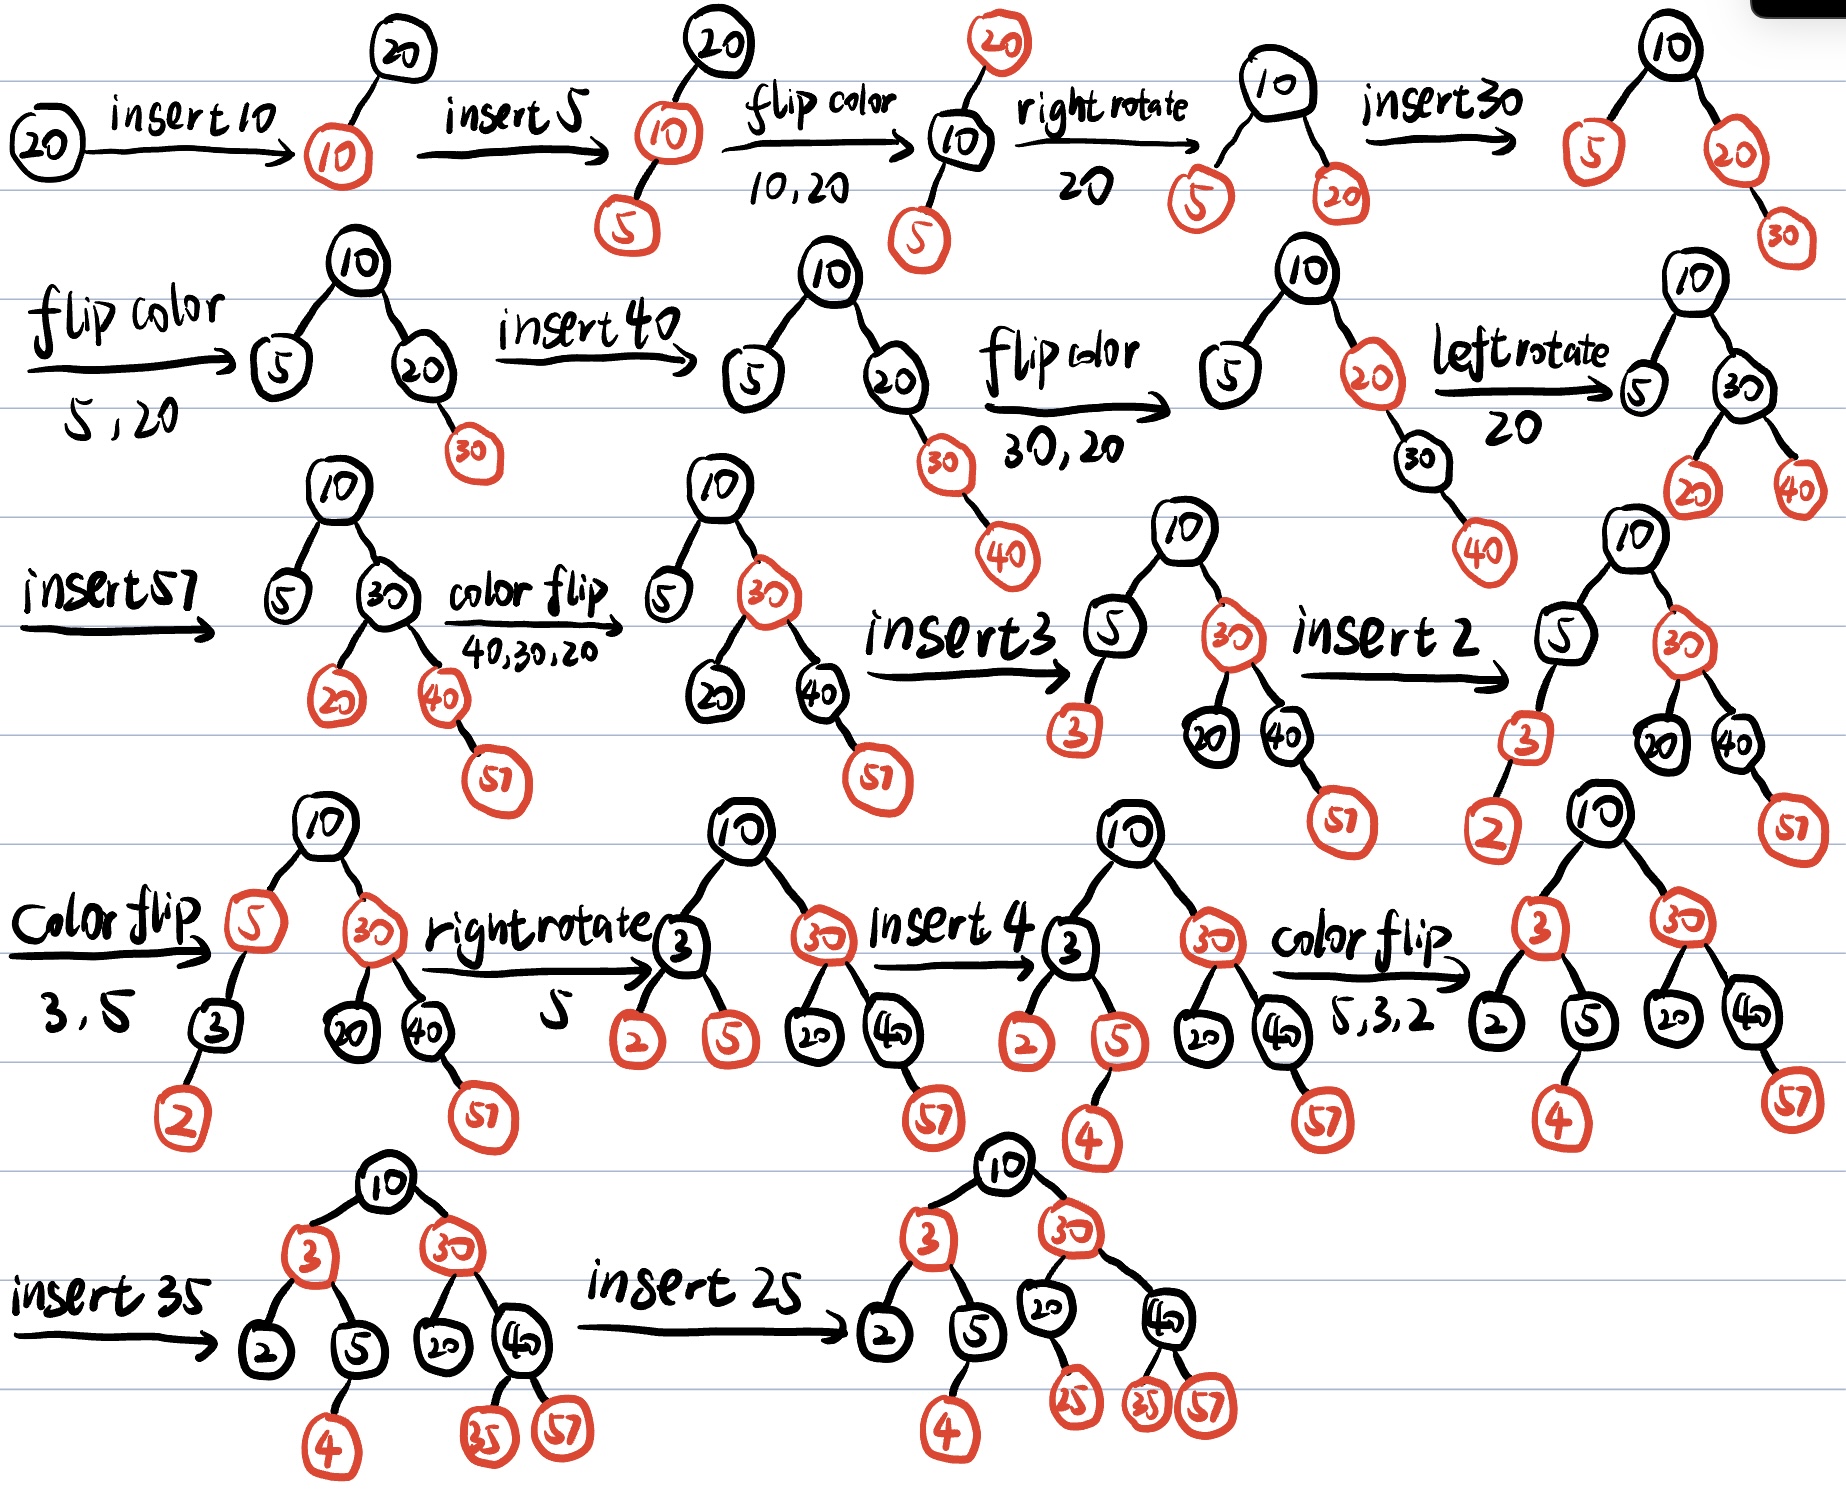 20 insert 10 20 10 insert 5 20 10 5 flip color 10,20 20 10 5 right rotate 20 10 5 20 insert 30 10 5 20 30
flip color 5,20 10 5 20 30 insert 40 10 5 20 30 40 flip color 30,20 10 5 20 30 40 left rotate 20 10 5 30 20 40
insert 57 10 5 30 20 40 57 color flip 40,30,20 10 5 30 20 40 57 insert 3 10 5 30 3 20 40 57 insert 2 10 5 30 3 20 40 2 57
Color flip 3,5 10 5 30 3 20 40 2 57 right rotate 5 10 3 30 2 5 20 40 57 Insert 4 10 3 30 2 5 20 40 4 57 color flip 5,3,2 10 3 30 2 5 20 40 4 57
insert 35 10 3 30 2 5 20 40 4 35 57 insert 25 10 3 30 2 5 20 40 4 25 35 57